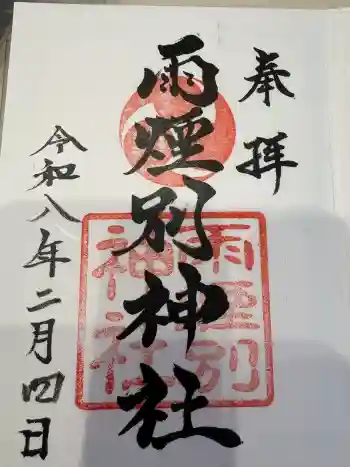 奉拝
雨煙別神社
雨煙別
神社
令和八年二月四日